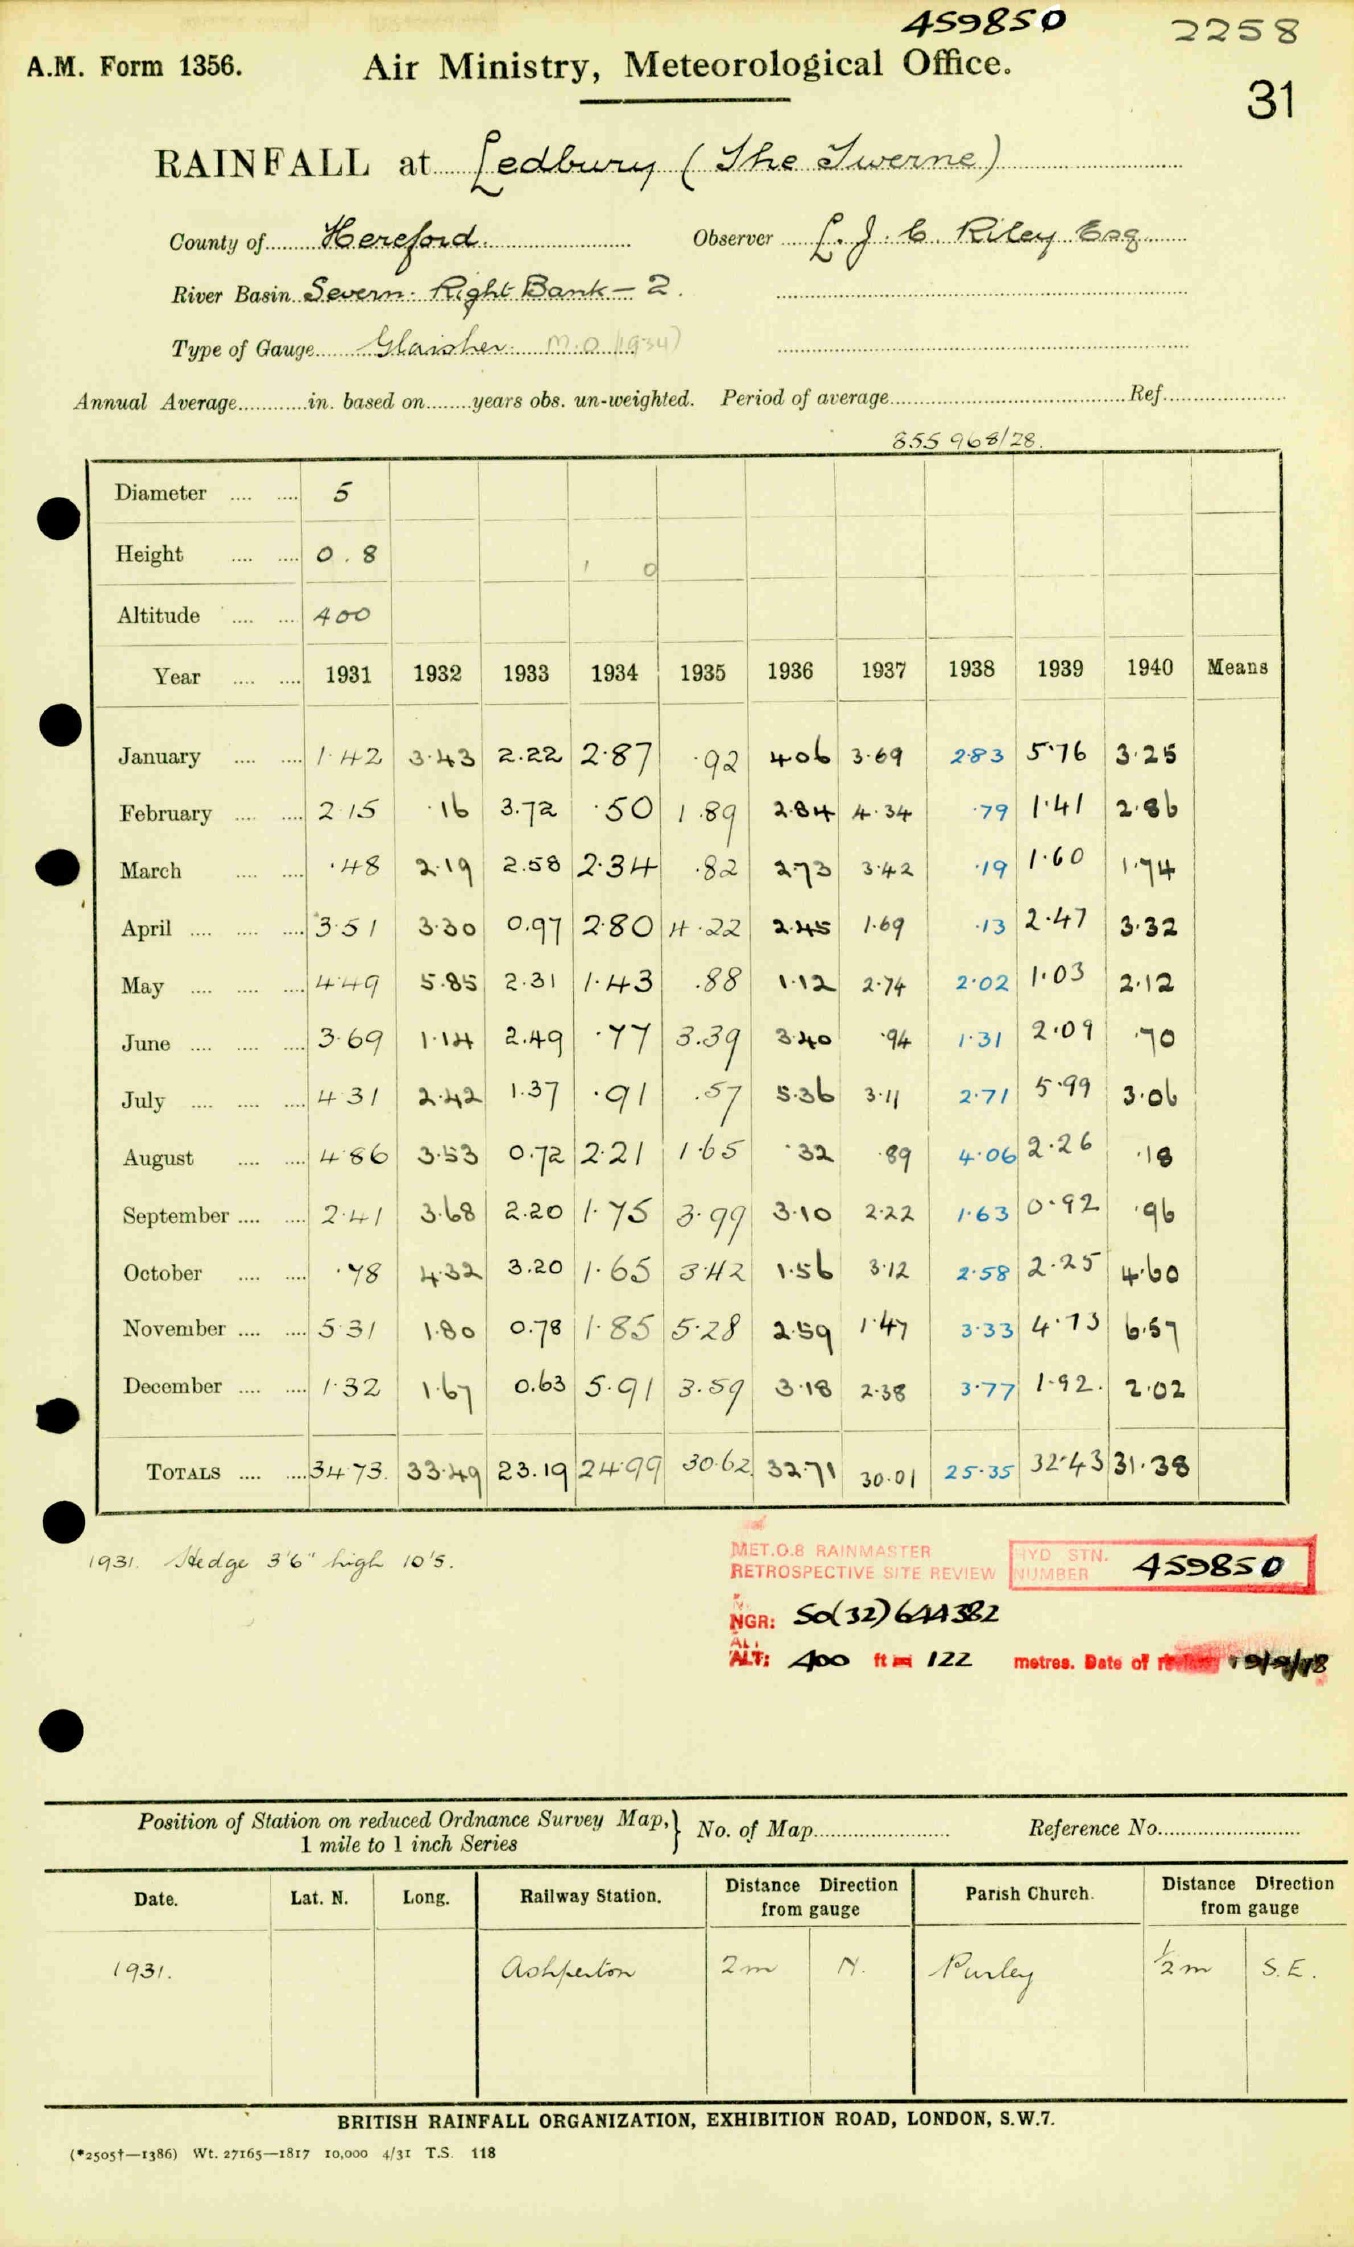 459850 2258
A.M. Form 1356. Air Ministry, Meteorological Office.
31
RAINFALL at Ledbury (The Twerne)
County of Hereford. Observer L. J. C. Riley Esq.
River Basin Severn. Right Bank - 2.
Type of Gauge Glaisher. M.O (1934)
Annual Average............in. based on........years obs. un-weighted. Period of average.......... Ref..........
855968/28.
Diameter .... .... 5
Height .... .... 0.8
Altitude .... .... 400
Year .... .... 1931 1932 1933 1934 1935 1936 1937 1938 1939 1940 Means
January .... .... 1.42 3.43 2.22 2.87 .92 4.06 3.69 2.83 5.76 3.25
February .... .... 2.15 .16 3.72 .50 1.89 2.84 4.34 .79 1.41 2.86
March .... .... .48 2.19 2.58 2.34 .82 2.73 3.42 .19 1.60 1.74
April .... .... .... 3.51 3.30 0.97 2.80 4.22 2.45 1.69 .13 2.47 3.32
May .... .... .... 4.49 5.85 2.31 1.43 .88 1.12 2.74 2.02 1.03 2.12
June .... .... .... 3.69 1.14 2.49 .77 3.39 3.40 .94 1.31 2.09 .70
July .... .... .... 4.31 2.42 1.37 .91 .57 5.36 3.11 2.71 5.99 3.06
August .... .... 4.86 3.53 0.72 2.21 1.65 .32 .89 4.06 2.26 .18
September .... .... 2.41 3.68 2.20 1.75 3.99 3.10 2.22 1.63 0.92 .96
October .... .... .78 4.32 3.20 1.65 3.42 1.56 3.12 2.58 2.25 4.60
November .... .... 5.31 1.80 0.78 1.85 5.28 2.59 1.47 3.33 4.73 6.57
December .... .... 1.32 1.67 0.63 5.91 3.59 3.18 2.38 3.77 1.92. 2.02
TOTALS .... .... 34.73. 33.49 23.19 24.99 30.62 32.71 30.01 25.35 32.43 31.38
1931. Hedge 3'6" high 10'S.
MET.O.8 RAINMASTER
RETROSPECTIVE SITE REVIEW
HYD STN. NUMBER 459850
NGR: SO(32)644382
ALT: 400 ft 122 metres. Date of
Position of Station on reduced Ordnance Survey Map, 1 mile to 1 inch Series } No. of Map.......... Reference No..........
Date. Lat. N. Long. Railway Station. Distance Direction from gauge Parish Church. Distance Direction from gauge
1931. Ashperton 2m N. Purley ½m S.E.
BRITISH RAINFALL ORGANIZATION, EXHIBITION ROAD, LONDON, S.W.7.
(*2505†—1386) Wt. 27165—1817 10,000 4/31 T.S. 118